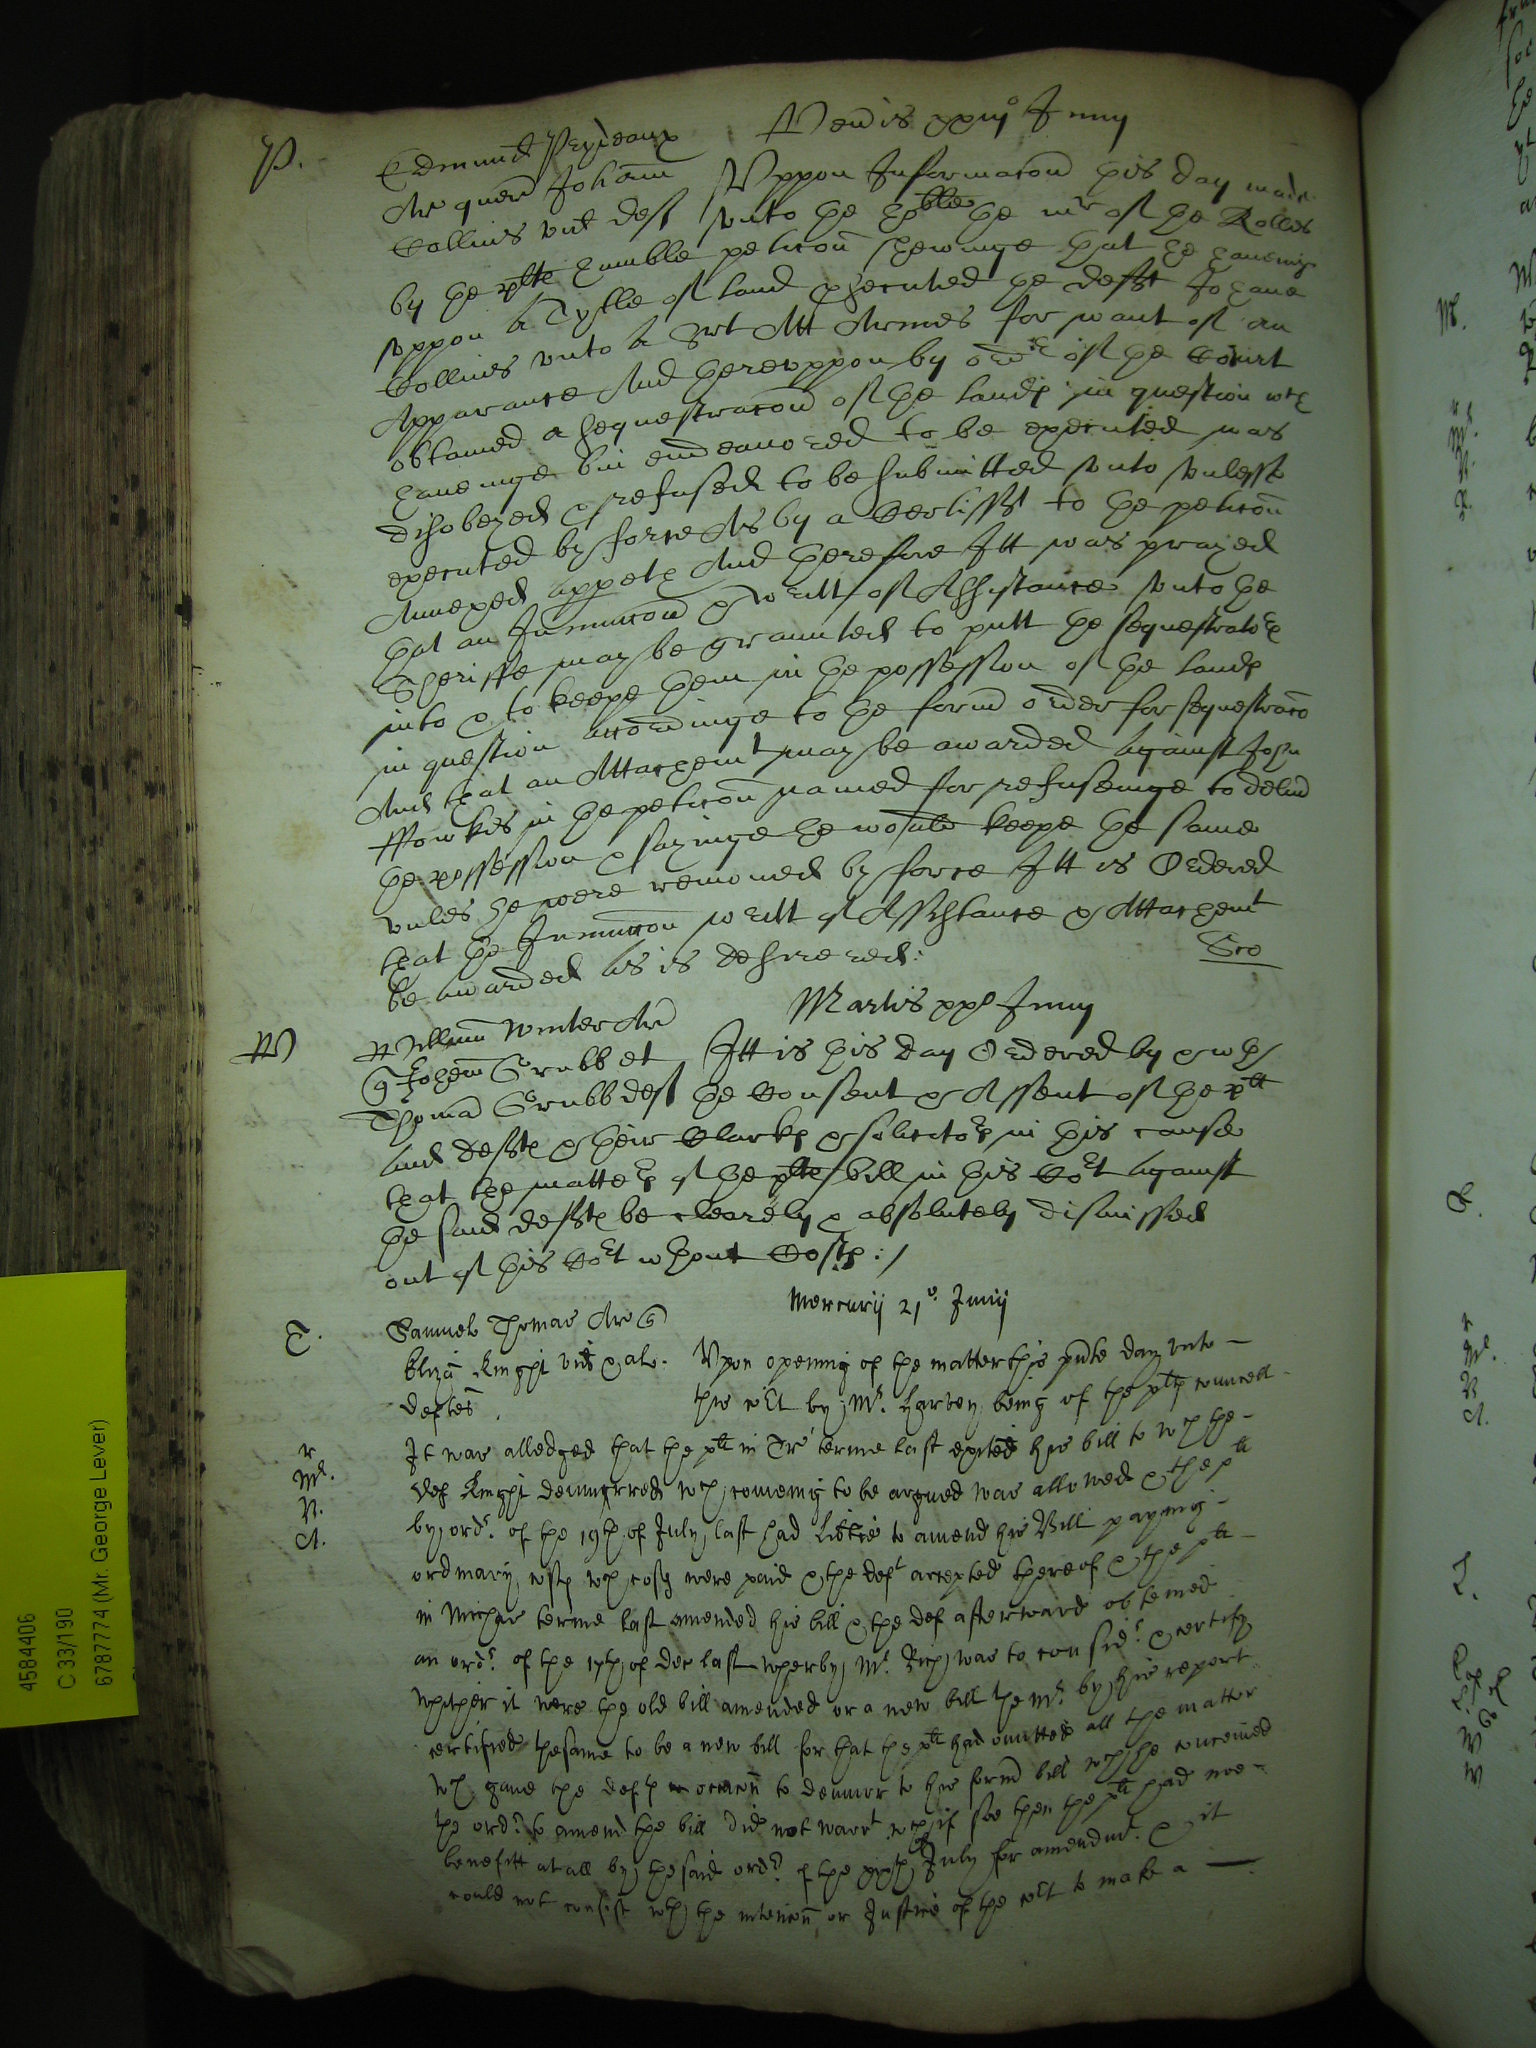 P.
Edmund Prideaux
Ar quer Johan
Collins vid deft
Veneris xxiij° Junij
Vppon Informacon this day made
vnto the ho:ble the mr of the Rolles
by the plts humble peticon shewinge that he haueing
vppon a Tytle of land prosecuted the defft Johane
Collins vnto a Srt Att Armes for want of an
Apparance And therevppon by order of the Court
obtained a sequestracon of the lands in question wch
haueinge bin endeauored to be executed was
disobeyed & refused to be submitted vnto vnlesse
executed by force As by a Certifft to the peticon
Annexed appeth And therefore Itt was prayed
that an Iniuncon & writt of Assistance vnto the
Sheriffe may be graunted to putt the sequestrators
into & to keepe them in the possession of the lands
in question accordinge to the form order for sequestracon
And that an Attachemt may be awarded against John
ffowkes in the peticon named for refuseinge to deliu
the possession & sayinge he would keepe the same
vnles he were remoued by force Itt is Ordered
that the Iniuncon writt of Assistance & Attachemt
be awarded as is desired:
W
William Winter Ar
q Johem Grubb et
Thomam Grubb deft
Martis xx° Junij
Itt is this day Ordered by & wth
the Consent & Assent of the plt
and deffts & their Clarks & solicitors in this cause
that the matter of the plts bill in this Cort against
the said deffts be clearely & absolutely dismissed
out of this Cort wthout Costs:/
T.
Samuel Thomas Ar q
Eliza Knight vid & al.
deftes.
Mercurij 21°. Junij
Vpon opening of the matter this pnte day vnto
this cort by Mr. Harvey being of the plts councell
It was alledged that the plt in Tr' terme last exited his bill to wch the
def Knight demurred wch coming to be argued was allowed & the plt
by ordr. of the 19th of July last had libtie to amend his Bill paying
ordinary costs wch costs were paid & the deft accepted thereof & the plt
in Michas terme last amended his bill & the def afterwards obteined
an ordr. of the 17th of Dec last wherby Mr. Rich was to consider. & certify
whither it were the old bill amended or a new bill the Mr. by his report
certified the same to be a new bill for that the plt had omitted all the matter
wch gaue the defts occacon to demurr to his form bill wch he conceived
the ordr. to amend the bill did not warrt wch if soe then the plt had noe
benefitt at all by the said ordr. of the xixth of July for amendmt. & it
could not consist wth the intencon or Justice of the cort to make a
r
Mr.
V.
A.
4584406
C 33/190
6787774 (Mr. George Lever)